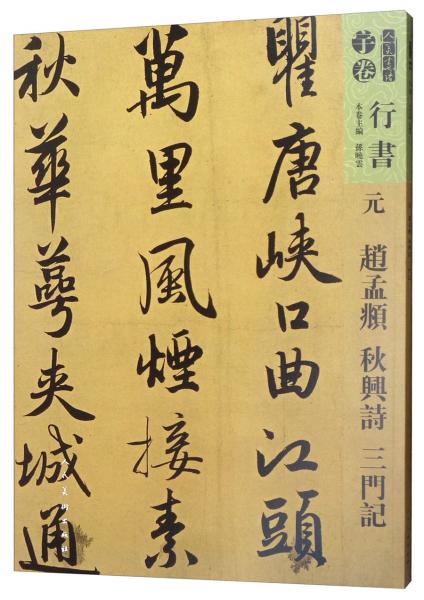 人美书谱
宇卷
行書
本卷主編 孫曉雲
元 趙孟頫 秋興詩 三門記
瞿唐峡口曲江頭
萬里風煙接素
秋華萼夹城通
人民美術出版社